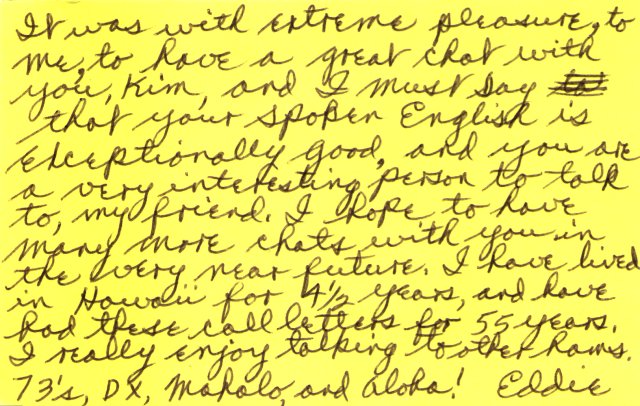 It was with extreme pleasure, to
me, to have a great chat with
you, Kim, and I must say
that your spoken English is
exceptionally good, and you are
a very interesting person to talk
to, my friend. I hope to have
many more chats with you in
the very near future. I have lived
in Hawaii for 4 1/2 years, and have
had these call letters for 55 years.
I really enjoy talking to other hams.
73's, DX, Mahalo, and Aloha! Eddie